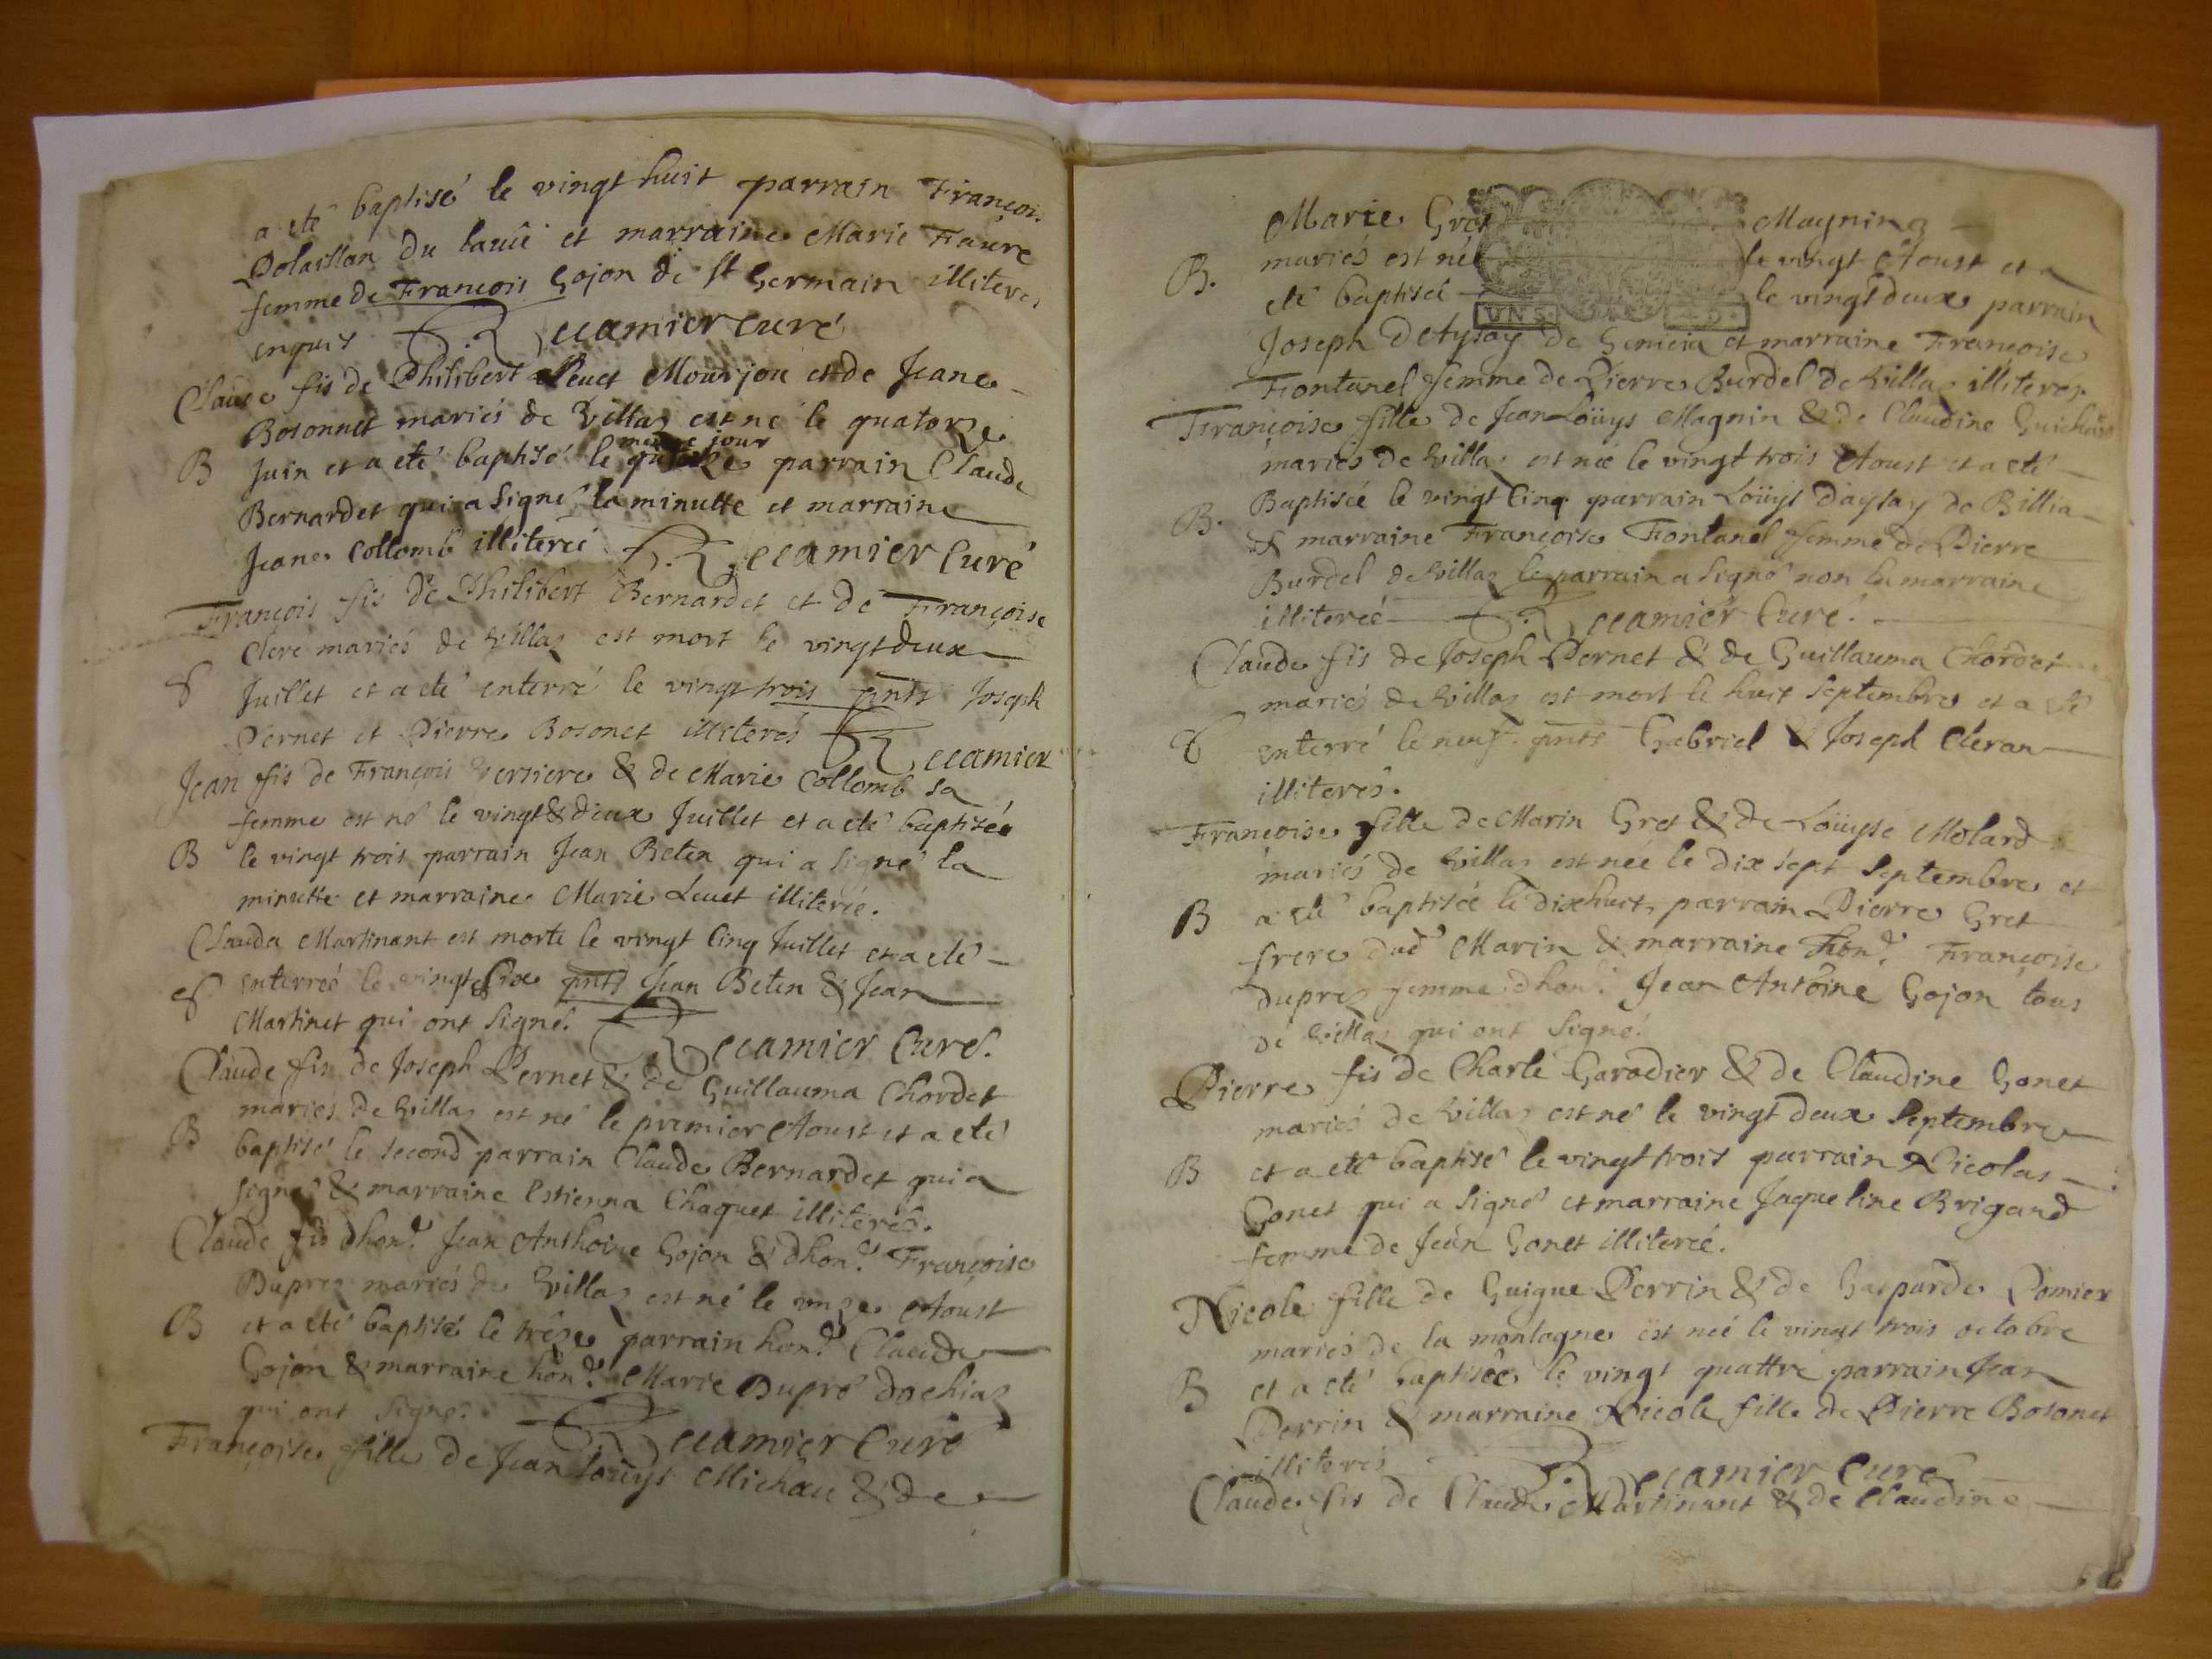 a eté baptisé le vingt huit parrain Françoi.
Polaillon du lauû et marraine Marie Faure
femme de François Gojon de St Germain illiteres
enquis Recamier curé
Claude fis de Philibert Peuet Mourjon et de Jeane
Bosonnet mariés de Villaz est né le quatorze
même jour
B Juin et a eté baptisé le parrain Claude
Bernardet qui a signé la minutte et marraine
Jeane Collomb illiterée Recamier Curé
François fis de Philibert Bernardet et de Françoise
Clere mariés de Villaz est mort le vingt deux
S Juillet et a eté enterré le vingt trois pnts Joseph
Pernet et Pierre Bosonet illiterés Recamier
Jean fis de François Versiere & de Marie Collomb sa
femme est né le vingt & deux Juillet et a eté baptisée
B le vingt trois parrain Jean Beten qui a signé la
minutte et marraine Marie Leuet illiterée.
Clauda Martinant est morte le vingt Cinq Juillet et a eté
S enterreé le vingt Six pnts Jean Beten & Jean
Martinet qui ont signé. Recamier Curé.
Claude fis de Joseph Pernet & de Guillauma Chordet
mariés de Villaz est né le premier Aoust et a eté
B baptisé le second parrain Claude Bernardet qui a
signé & marraine Estienna Chaquet illiterée.
Claude fis dhon.e Jean Anthoine Gojon & dhon.e Françoise
Duprez mariés de Villaz est né le unze Aoust
B et a eté baptisé le trêze parrain hon.e Claude
Gojon & marraine hon.e Marie Dupré dochiaz
qui ont signé. Recamier Curé
Françoise fille de Jean Loüys Michau & de
Marie Gret Magninz
mariés est née le vingt Aoust et a
B. eté baptiseé le vingt deux parrain
Joseph Detysay de Gemieia et marraine Françoise
Fontanel femme de Pierre Burdel de Villaz illiterés.
Françoise fille de Jean Loüys Magnin & de Claudine Guichard
mariés de Villaz est née le vingt trois Aoust et a eté
B. Baptiseé le vingt Cinq parrain Loüys d'aysay de Billia
& marraine Françoise Fontanel femme de Pierre
Burdel de Villaz le parrain a signé non la marraine
illitereé Recamier Curé.
Claude fis de Joseph Pernet & de Guillauma Chordet
mariés de Villaz est mort le huit Septembre et a eté
S enterré le neuf. pnts Gabriel & Joseph Cleran
illiterés.
Françoise fille de Marin Gret & de Loüyse Molard
mariés de Villaz est née le dix sept Septembre et
B a eté baptiseé le dixhuit, parrain Pierre Gret
frere dud Marin & marraine Hon.e Françoise
duprez femme dhon.e Jean Antoine Gojon tous
de Villaz qui ont signé.
Pierre fis de Charle Garadier & de Claudine Gonet
mariés de Villaz est né le vingt deux Septembre
B et a eté baptisé le vingt trois parrain Nicolas
Gonet qui a signé et marraine Jaqueline Brigand
femme de Jean Gonet illitereé.
Nicole fille de Guigue Perrin & de Gasparde Pomier
mariés de la montagne est neé le vingt trois octobre
B et a eté baptiseé le vingt quattre parrain Jean
Perrin & marraine Nicole fille de Pierre Bosonet
illiterés Recamier Curé
Claude fis de Claude Martinant & de Claudine